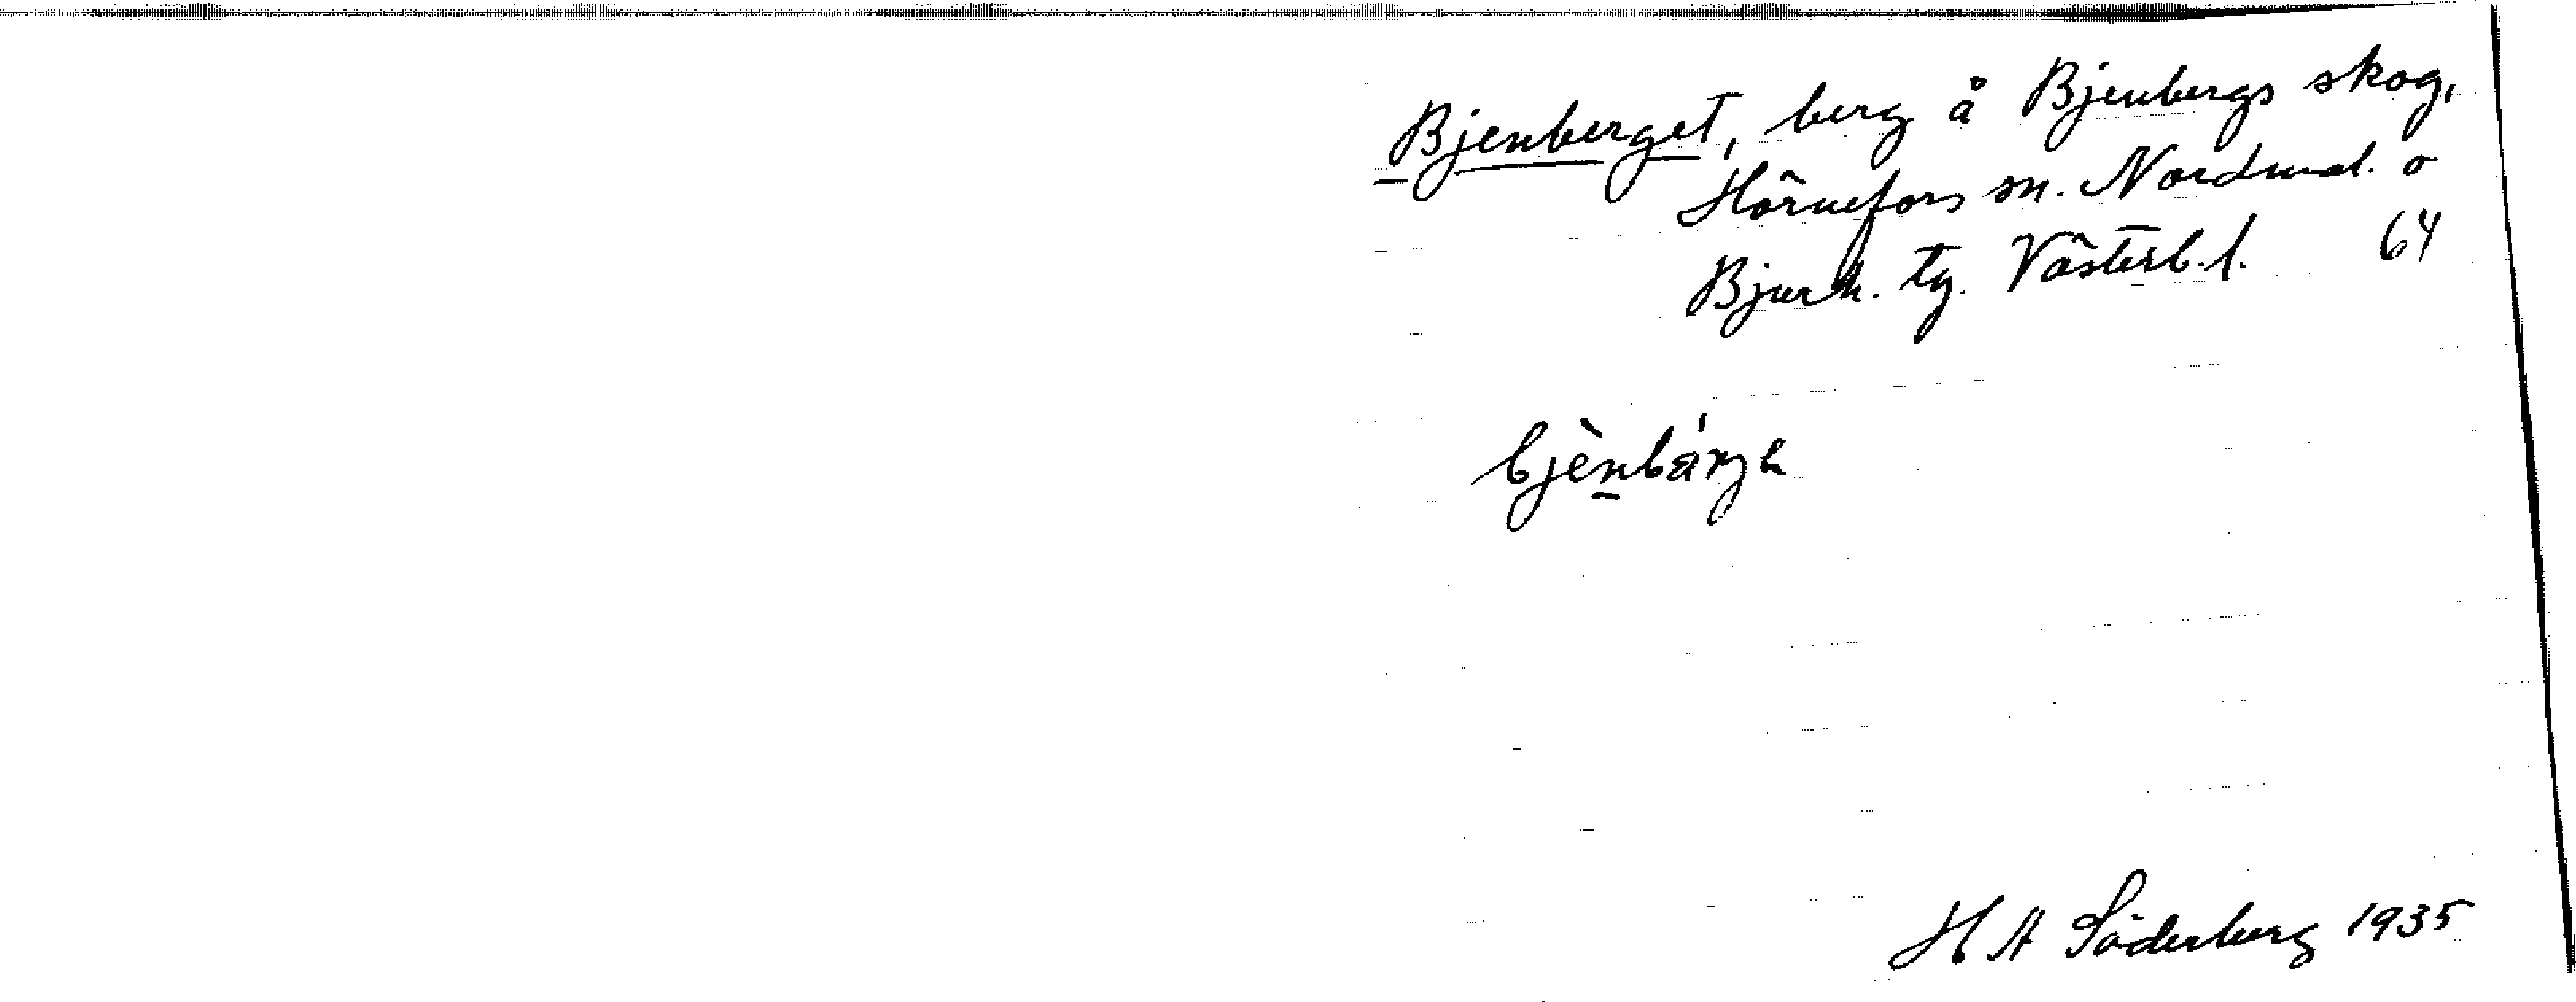 Bjenberget, berg å Bjenbergs skog,
Hörnefors sn. Nordmal. o
Bjurh. tg. Västerb. l. 64
bjènbárjɩ
H A Söderberg 1935